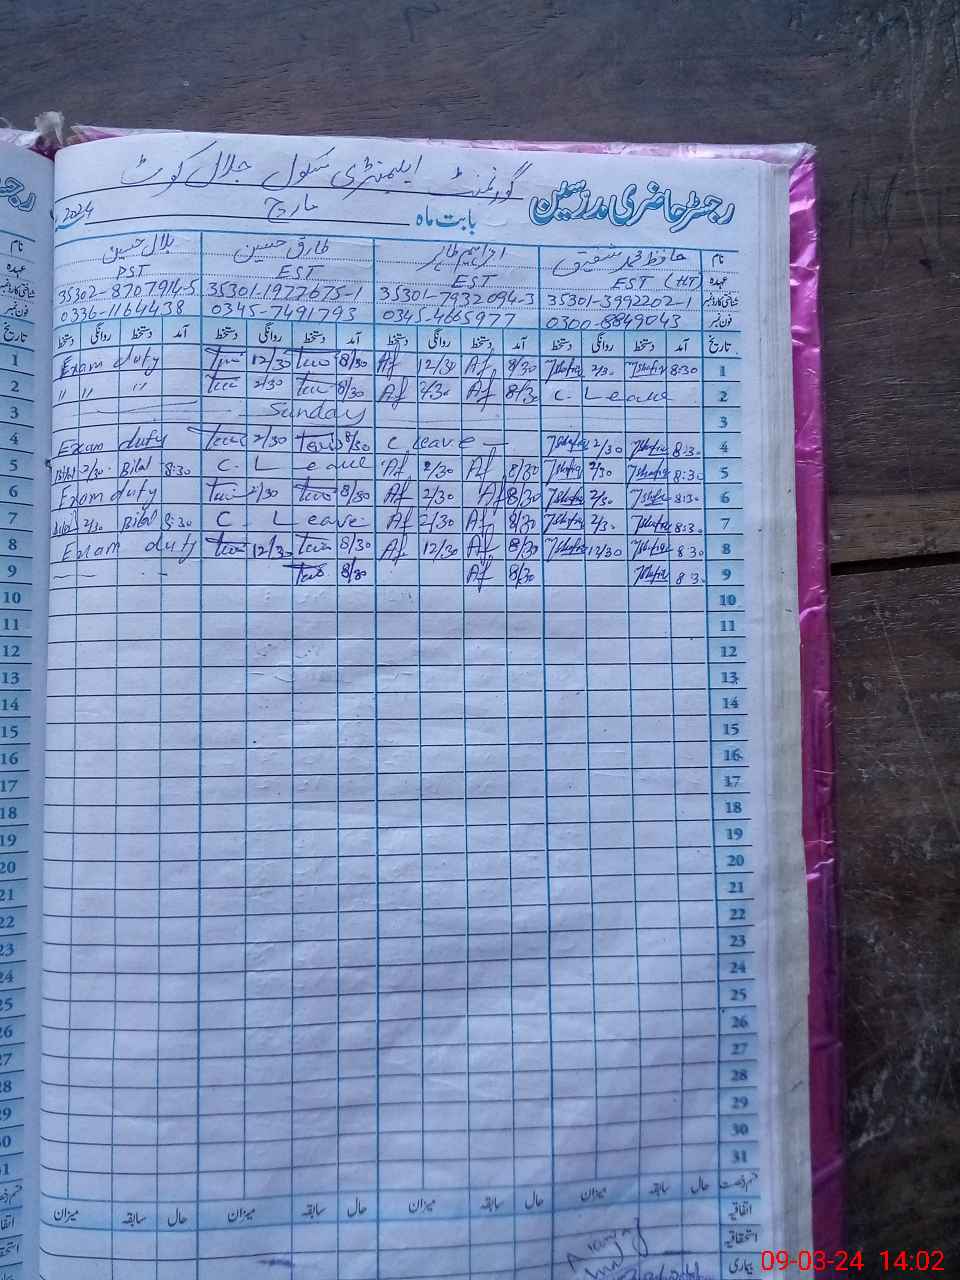 گورنمنٹ ایلیمنٹری سکول جلال کوٹ
رجسٹر حاضری مدرسین بابت ماہ مارچ 2024
نام حافظ محمد شفیق ابراہیم طاہر طارق حسین بلال حسین
عہدہ EST (HT) EST EST PST
شناختی کارڈ نمبر 35301-3992202-1 35301-7932094-3 35301-1977675-1 35302-8707914-5
فون نمبر 0300-8849043 0345-4665977 0345-7491793 0336-1164438
تاریخ آمد دستخط روانگی دستخط آمد دستخط روانگی دستخط آمد دستخط روانگی دستخط آمد دستخط روانگی دستخط
Exam duty 12/30 8/30 Af 12/30 Af 8/30 2/30 8:30 1
" " " 2/30 8/30 Af 2/30 Af 8/30 C. Leave 2
Sunday 3
Exam duty 2/30 8/30 C. Leave 2/30 8:30 4
Bilal 2/30 Bilal 8:30 C. Leave Af 2/30 Af 8/30 2/30 8:30 5
Exam duty 2/30 8/30 Af 2/30 Af 8/30 2/30 8:30 6
Bilal 2/30 Bilal 8:30 C. Leave Af 2/30 Af 8/30 2/30 8:30 7
Exam duty 12/30 8/30 Af 12/30 Af 8/30 12/30 8:30 8
8/30 Af 8/30 8:30 9
10
11
12
13
14
15
16
17
18
19
20
21
22
23
24
25
26
27
28
29
30
31
قسم رخصت حال سابقہ میزان حال سابقہ میزان حال سابقہ میزان حال سابقہ میزان
اتفاقیہ
استحقاقیہ
بیماری
09-03-24 14:02